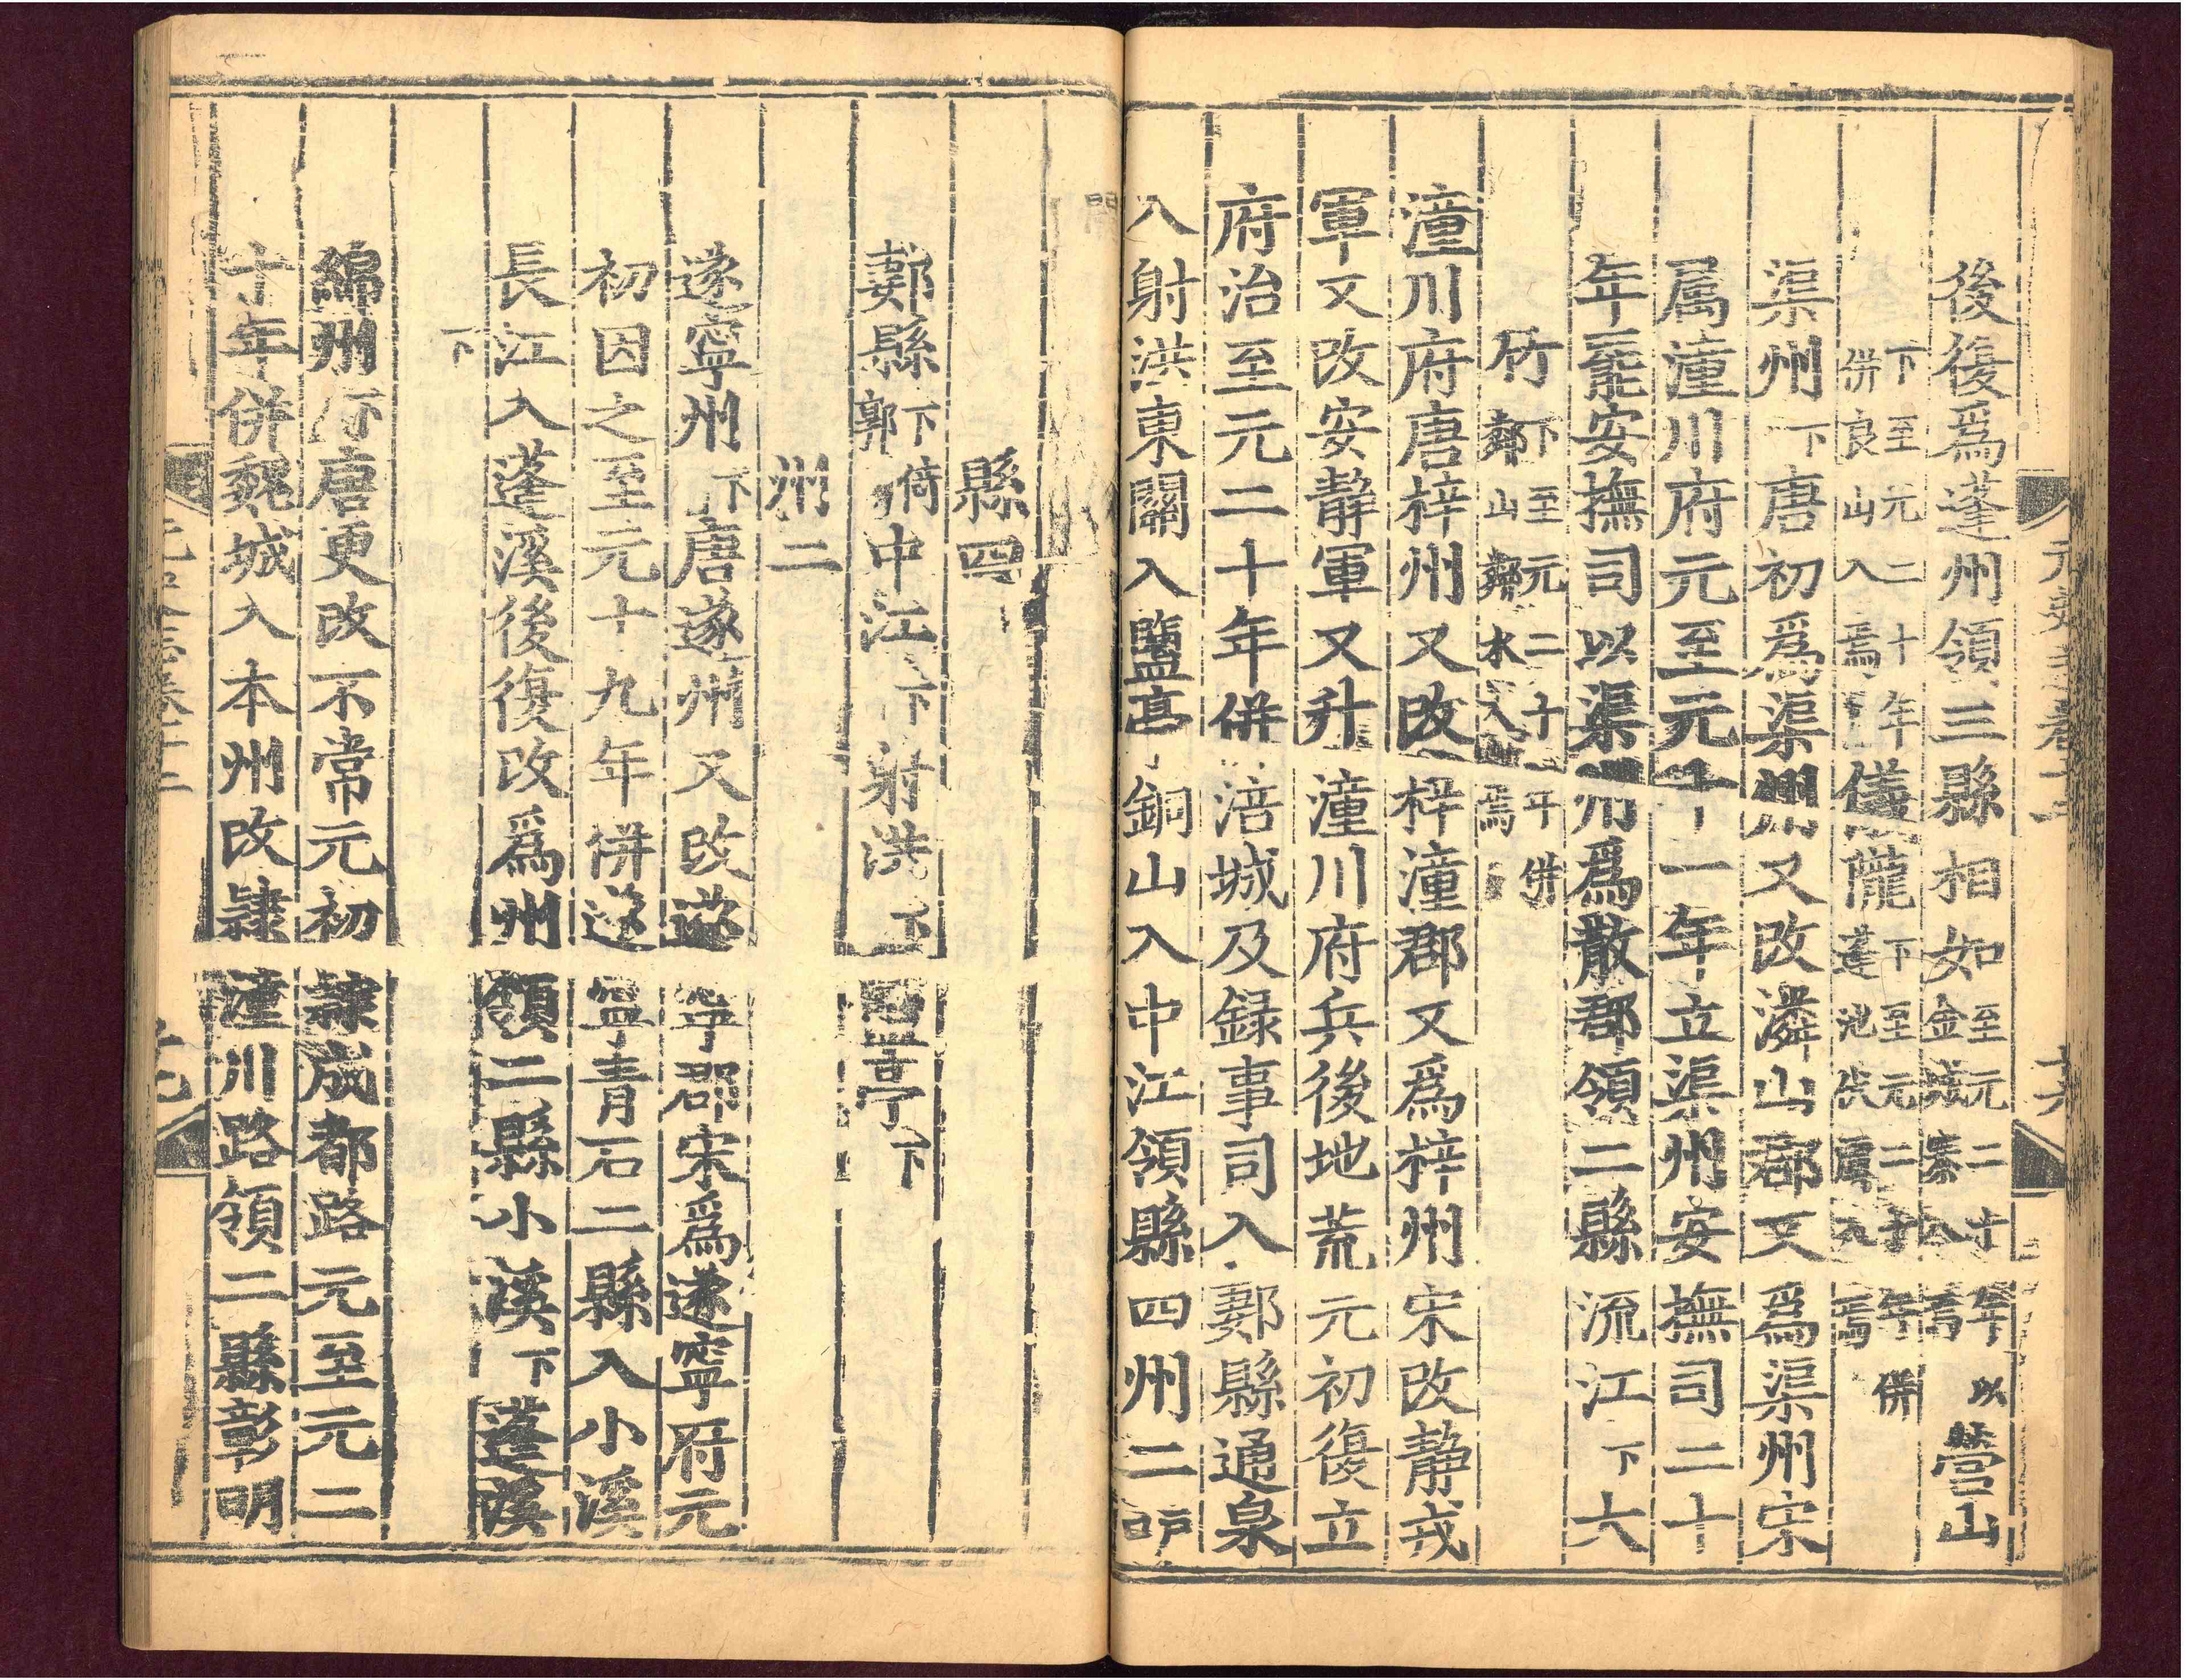 後復爲蓬州領三縣相如至元二十年以金城寨入焉營山
下至元二十年併良山入焉儀隴下至元二十年併蓬池伏虞入焉
渠州下唐初爲渠州又改潾山郡又爲渠州宋
属潼川府元至元十一年立渠州安撫司二十
年罷安撫司以渠州爲散郡領二縣流江下大
竹下至元二十年併鄰山鄰水入焉
潼川府唐梓州又改梓潼郡又爲梓州宋改静戎
軍又改安静軍又升潼川府兵後地荒元初復立
府治至元二十年併涪城及錄事司入郪縣通泉
入射洪東關入鹽亭銅山入中江領縣四州二
縣四
郪縣下倚郭中江下射洪下鹽亭下
州二
遂寧州下唐遂州又改遂寧郡宋爲遂寧府元
初因之至元十九年併遂寧青石二縣入小溪
長江入蓬溪後復改爲州領二縣小溪下蓬溪
下
綿州下唐更改不常元初隸成都路元至元二
十年併魏城入本州改隸潼川路領二縣彰明